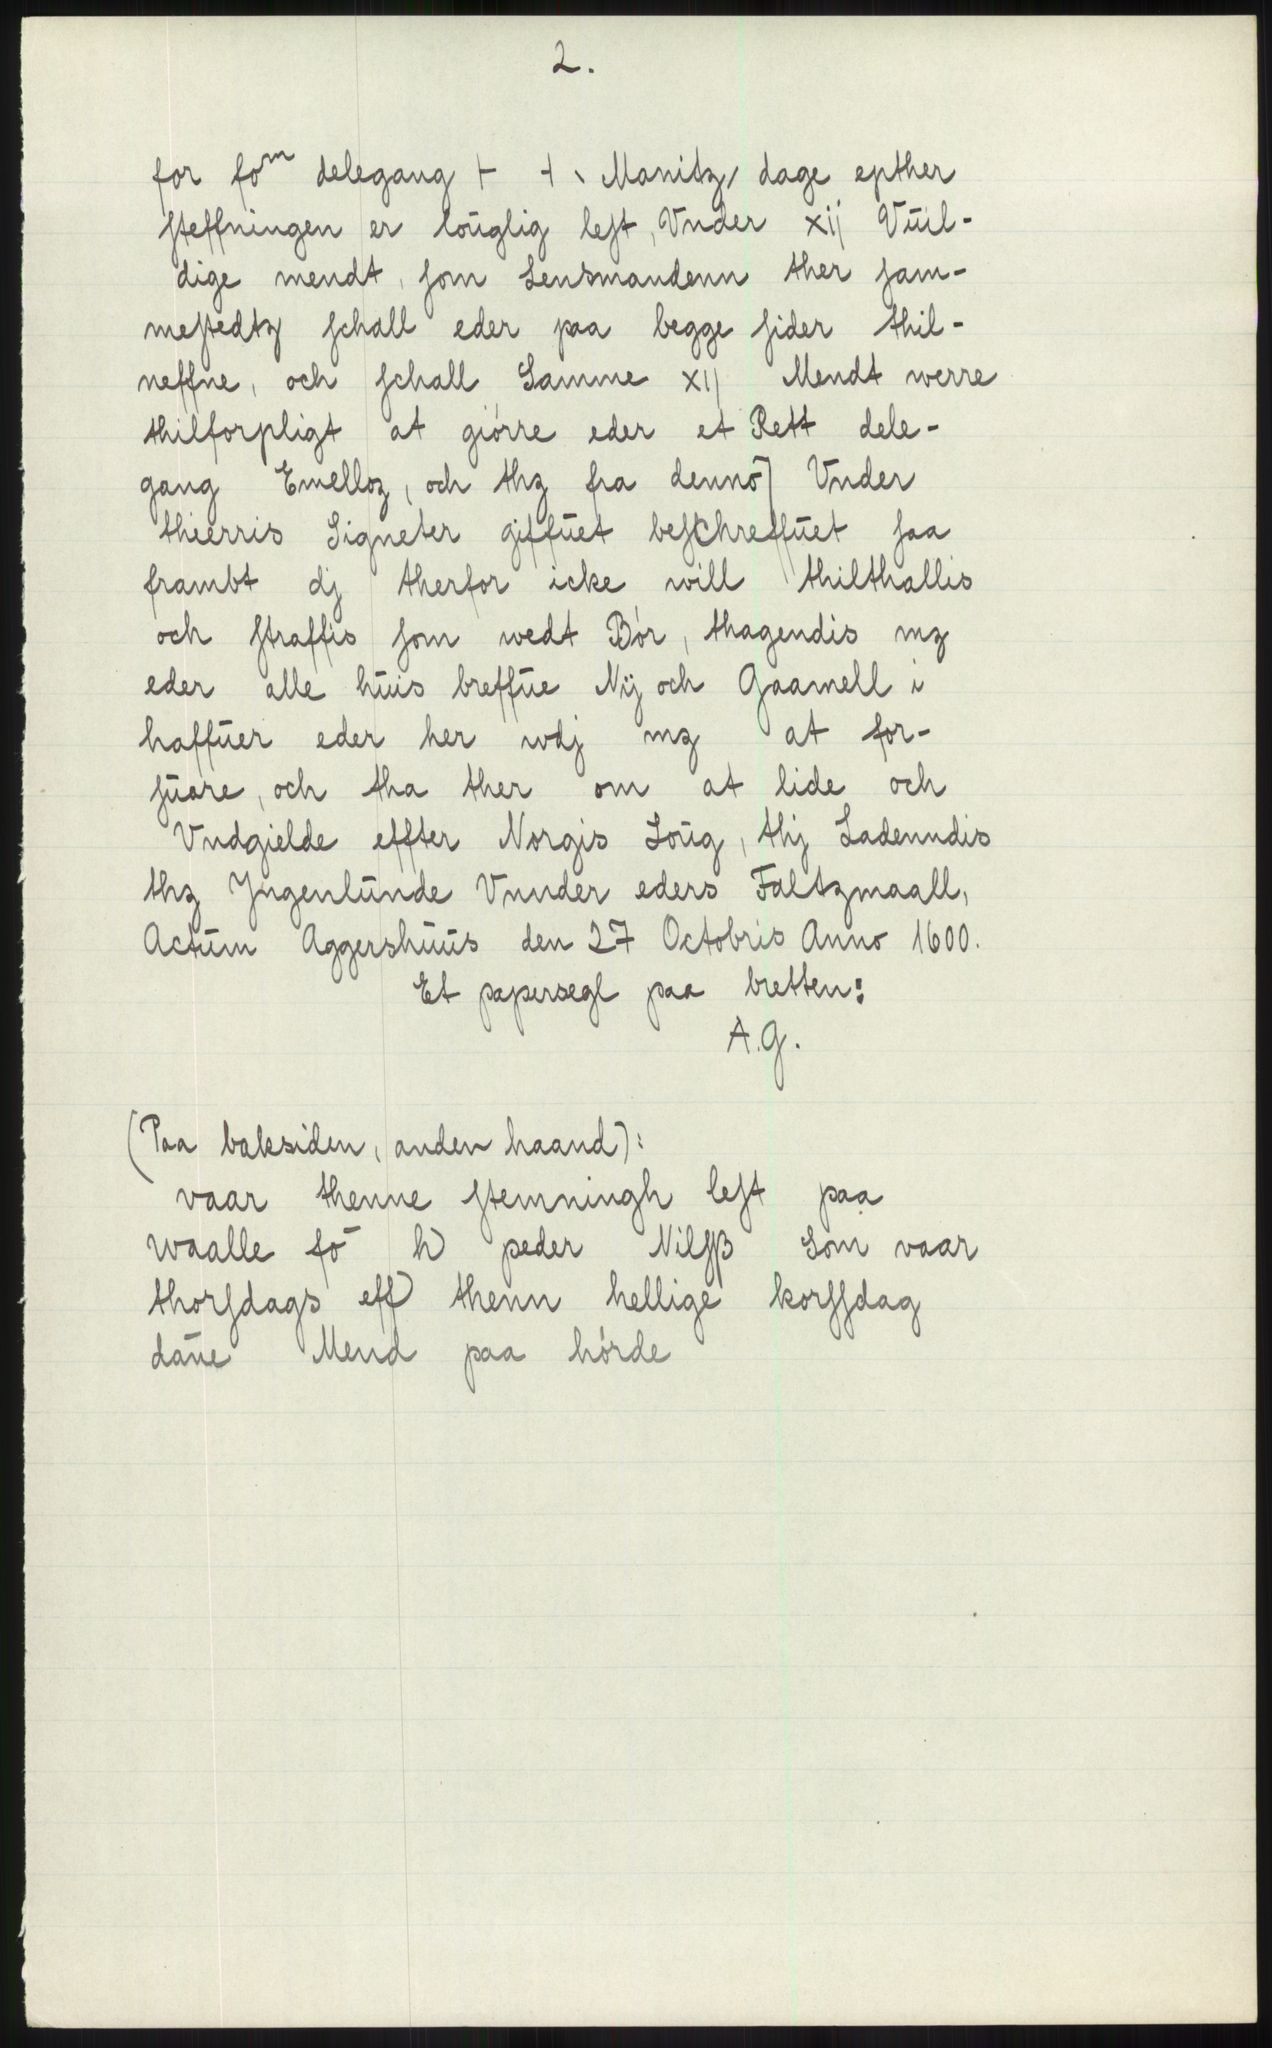 2.
for fom delegang + + Manitz, dage epther
ſteffningen er loŭglig leſt, Vnder xij Vŭil-
dige mendt, ſom Lensmandenn ther ſam-
meſtedtz ſchall eder paa begge ſider thil-
neffne, och ſchall Samme xij Mendt werre
thilforpligt at giørre eder et Rett dele-
gang Emelloz, och thz fra dennō Vnder
thierris Signeter giffŭet beſchreffŭet ſaa
frambt dj therfor icke will thilthallis
och ſtraffis ſom wedt Bør, thagendis mz
eder alle hŭis breffŭe Nÿ och Gaamell i
haffŭer eder her wdj mz at for-
ſŭare, och tha ther om at lide och
Vndgielde effter Norgis Loŭg, thj Ladenndis
thz Jngenlŭnde Vnnder eders Faltzmaall,
Actŭm Aggershŭŭs den 27 Octobris Anno 1600.
Et papersegl paa bretten:
A.G.
(Paa baksiden, anden haand):
vaar thenne ſtemningh leſt paa
waalle fō h peder Nilſβ Som vaar
thorſdags eff thenn hellige korſſdag
dāne Mend paa hørde